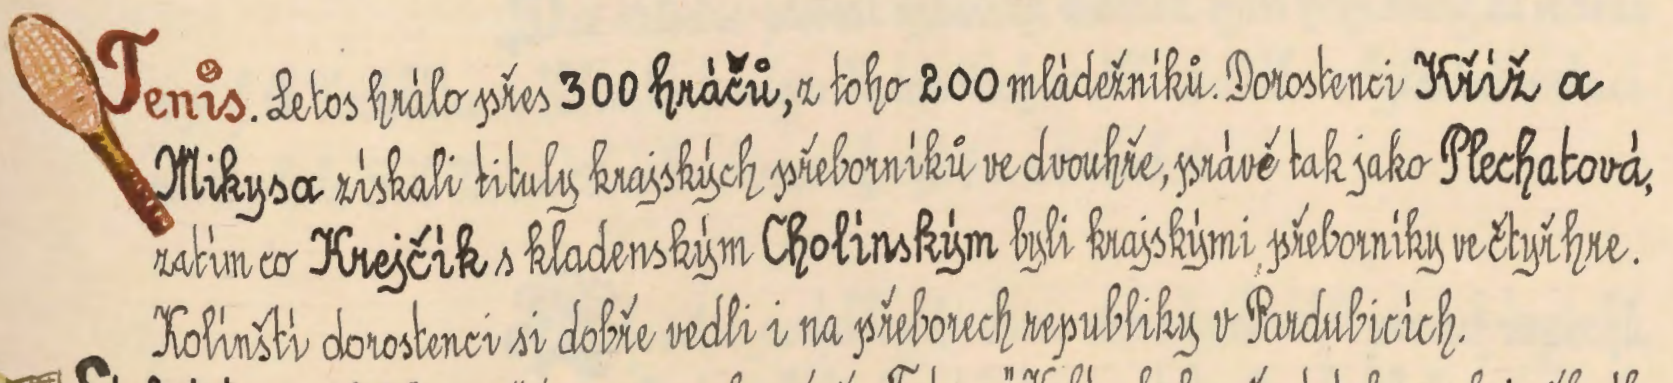 Tenis. Letos hrálo přes 300 hráčů, z toho 200 mládežníků. Dorostenci Kříž a
Mikysa získali tituly krajských přeborníků ve dvouhře, právě tak jako Plechatová,
zatím co Krejčík s kladenským Cholínským byli krajskými přeborníky ve čtyřhre.
Kolínští dorostenci si dobře vedli i na přeborech republiky v Pardubicích.